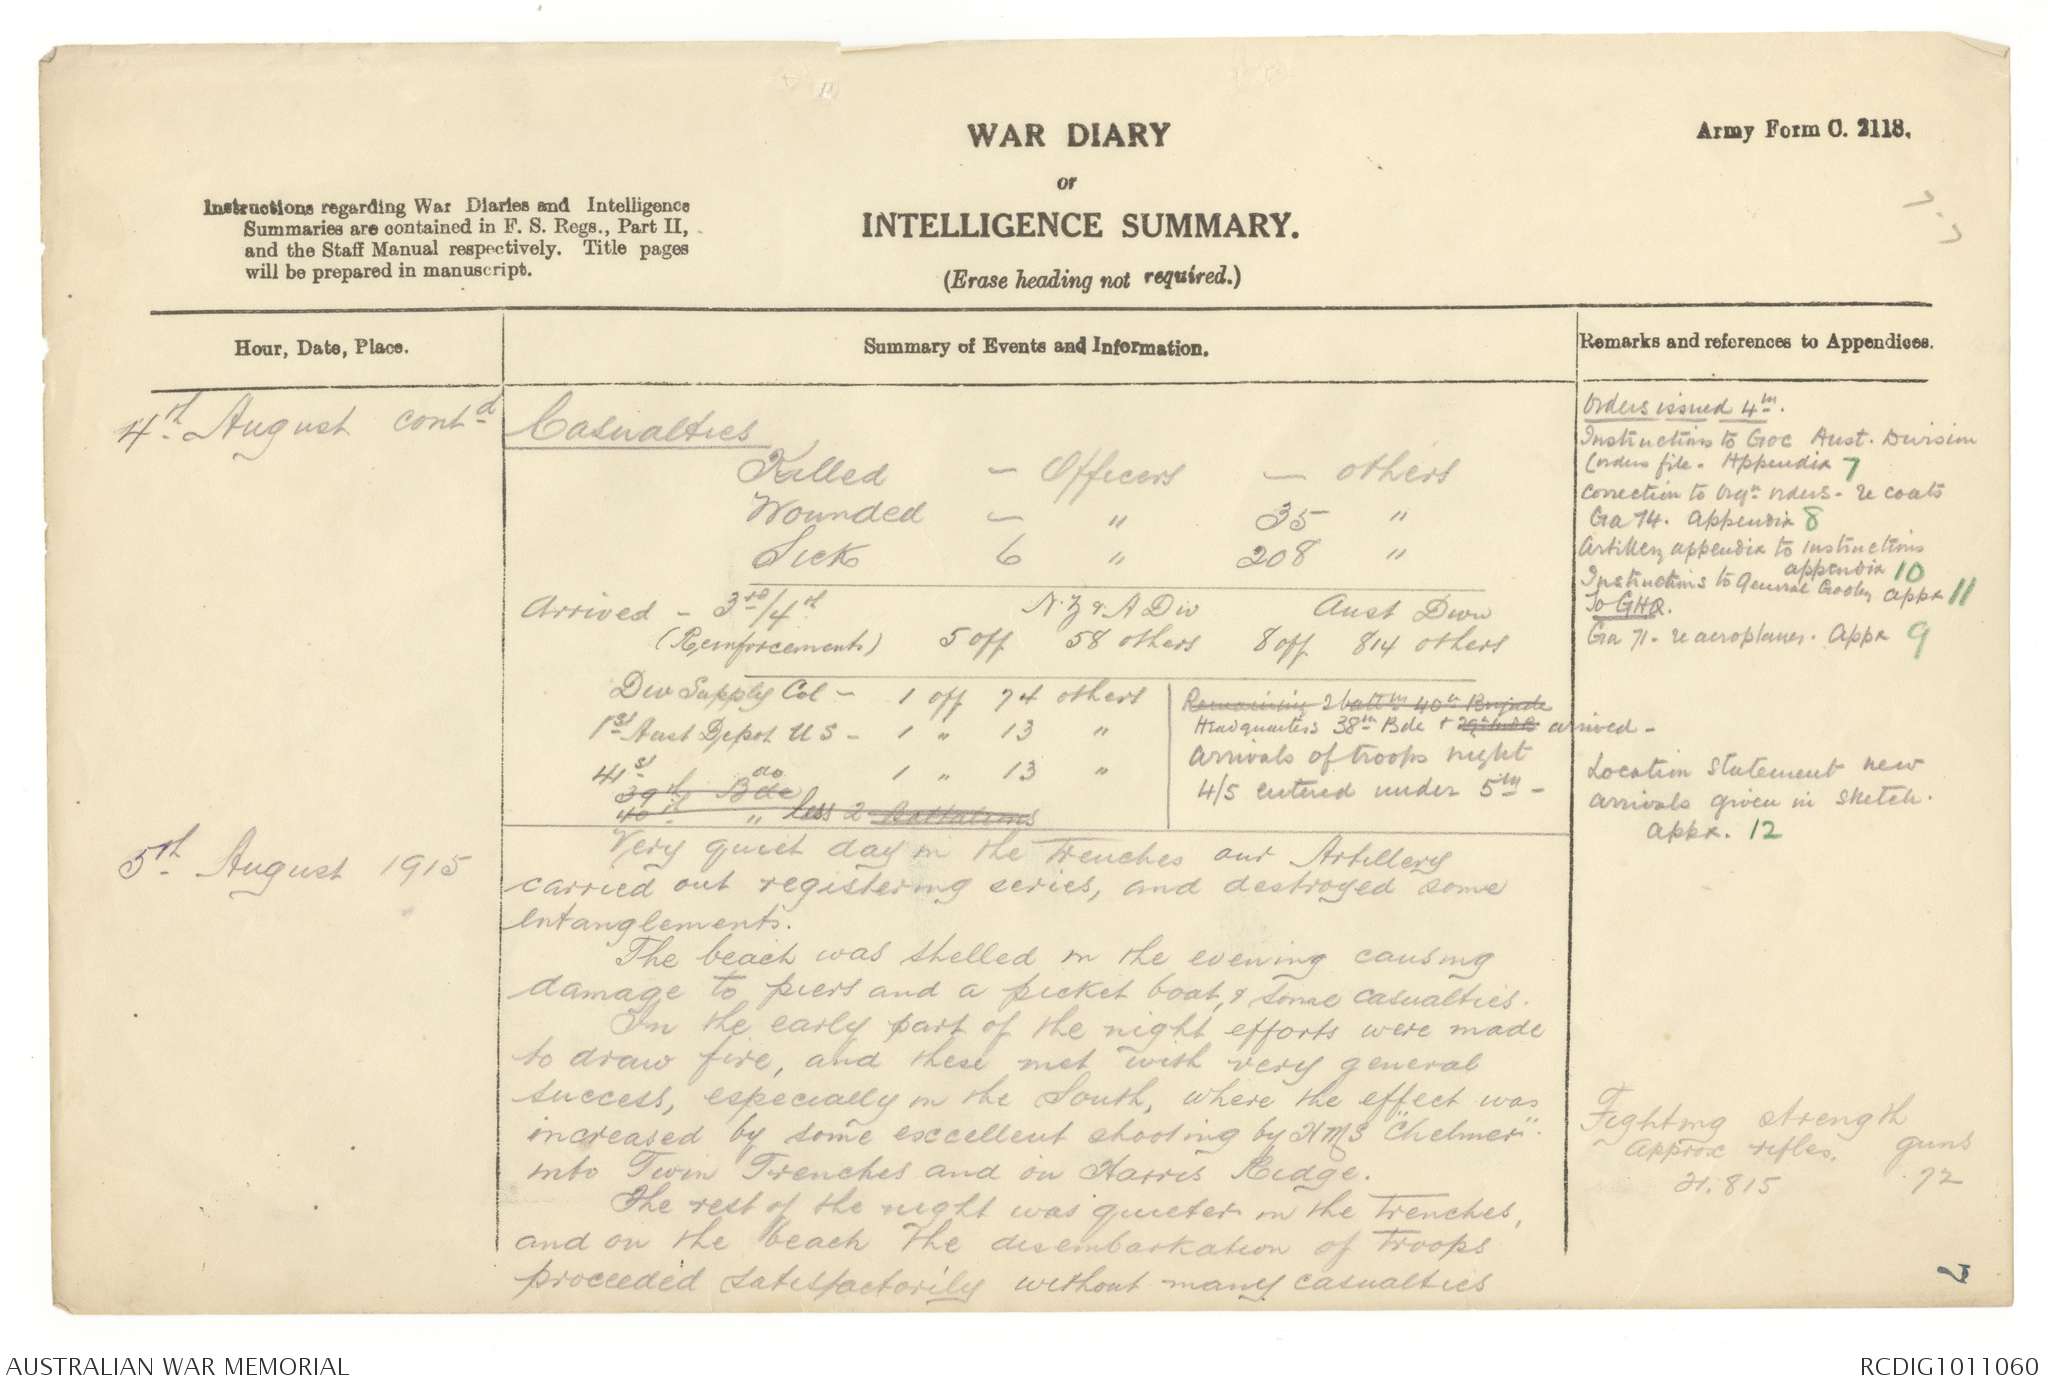 WAR DIARY
or
INTELLIGENCE SUMMARY.
(Erase heading not required.)
Army Form C. 2118.
Instructions regarding War Diaries and Intelligence
Summaries are contained in F. S. Regs., Part II,
and the Staff Manual respectively. Title pages
will be prepared in manuscript.
Hour, Date, Place.
Summary of Events and Information.
Remarks and references to Appendices.
4th August contd
Casualties
Killed - Officers - others
Wounded - " 35 "
Sick 6 " 208 "
Arrived - 3rd/4th N.Z & A Div Aust Divn
(Reinforcements) 5 off 58 others 8 off 814 others
Div Supply Col - 1 off 74 others
1st Aust Depot U S - 1 " 13 "
41st do 1 " 13 "
39th Bde
40th " less 2 Battalions
Remaining 2 battns 40th Brigade
Headquarters 38th Bde + arrived -
arrivals of troops night
4/5 entered under 5th -
Orders issued 4th.
Instructions to GOC Aust. Division
(orders file. Appendix 7
Correction to orders - re coats
Ga 74. Appendix 8
Artillery appendix to instructions
appendix 10
Instructions to General appx 11
To GHQ.
Ga 71 - re aeroplanes. Appx 9
Location statement new
arrivals given in sketch.
appx. 12
5th August 1915
Very quiet day in the trenches our Artillery
carried out registering series, and destroyed some
entanglements.
The beach was shelled in the evening causing
damage to piers and a picket boat, & some casualties.
In the early part of the night efforts were made
to draw fire, and these met with very general
success, especially in the South, where the effect was
increased by some excellent shooting by HMS "Chelmer"
into Twin Trenches and on Harris Ridge.
The rest of the night was quieter in the trenches,
and on the beach the disembarkation of troops
proceeded satisfactorily without many casualties
Fighting strength
Approx rifles. guns
21.815 72
7
AUSTRALIAN WAR MEMORIAL
RCDIG1011060